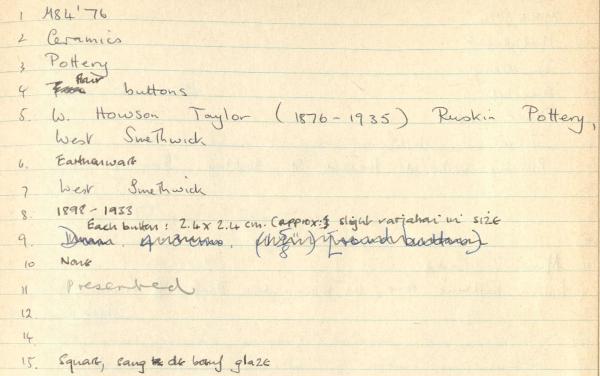 1 M84'76
2 Ceramics
3 Pottery
4 Four buttons
5. W. Howson Taylor (1876-1935) Ruskin Pottery,
West Smethwick
6. Earthenware
7 West Smethwick
8 1898-1933
Each button: 2.4 x 2.4 cm. (approx:) slight variation in size
9.
10 None
11 Presented
12
14
15. Square, sang de boeuf glaze